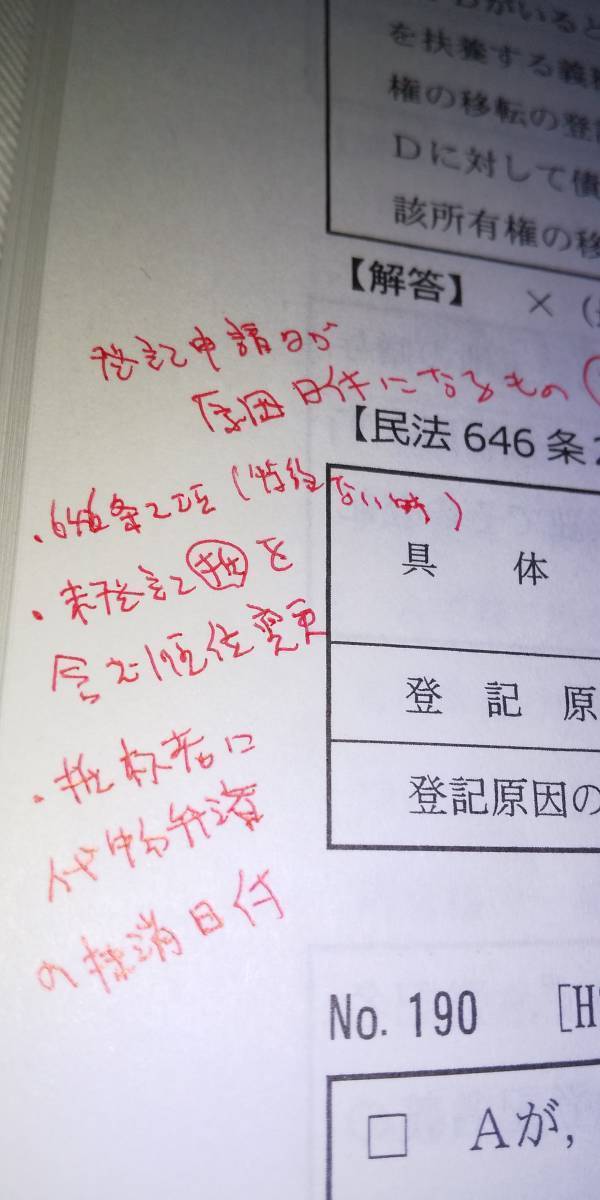 がいると
を扶養する義務
権の移転の登記
Dに対して債
該所有権の移
【解答】 ×(
登記申請日が
原因日付になるもの
【民法646条2
・646条2項(特約ない時)
具体
・未登記㊡を
含む順位変更
登記原
・抵当権者に
登記原因の
代物弁済
の抹消日付
No. 190 [H
□ Aが,